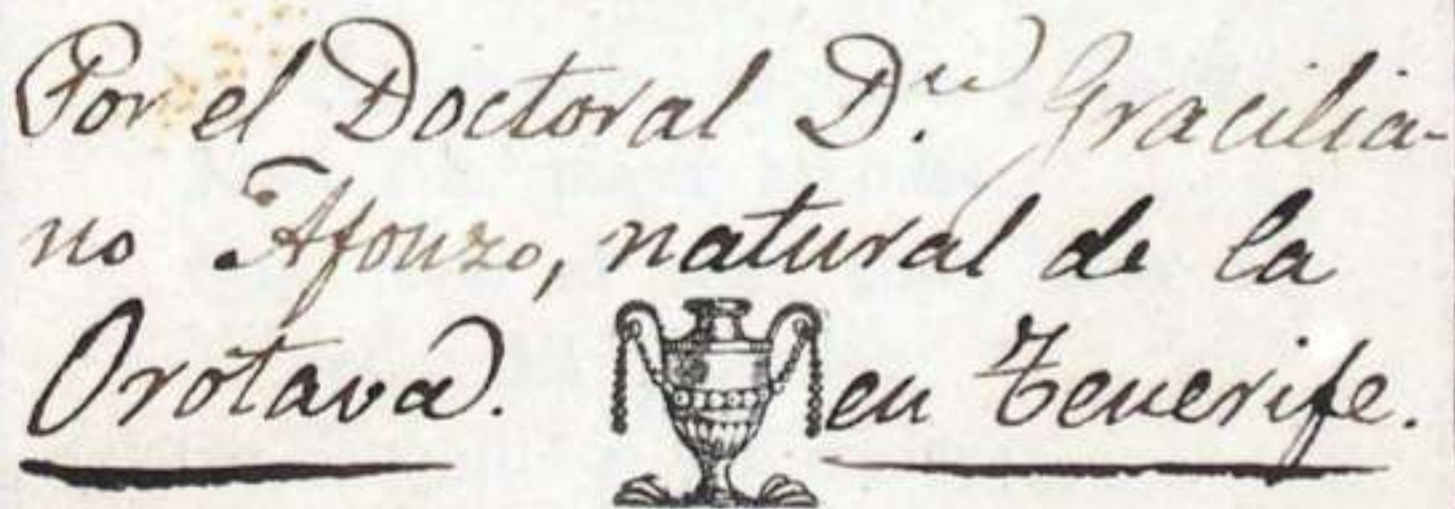 Por el Doctoral D.ⁿ Gracilia-
no Afonzo, natural de la
Orotava. en Tenerife.